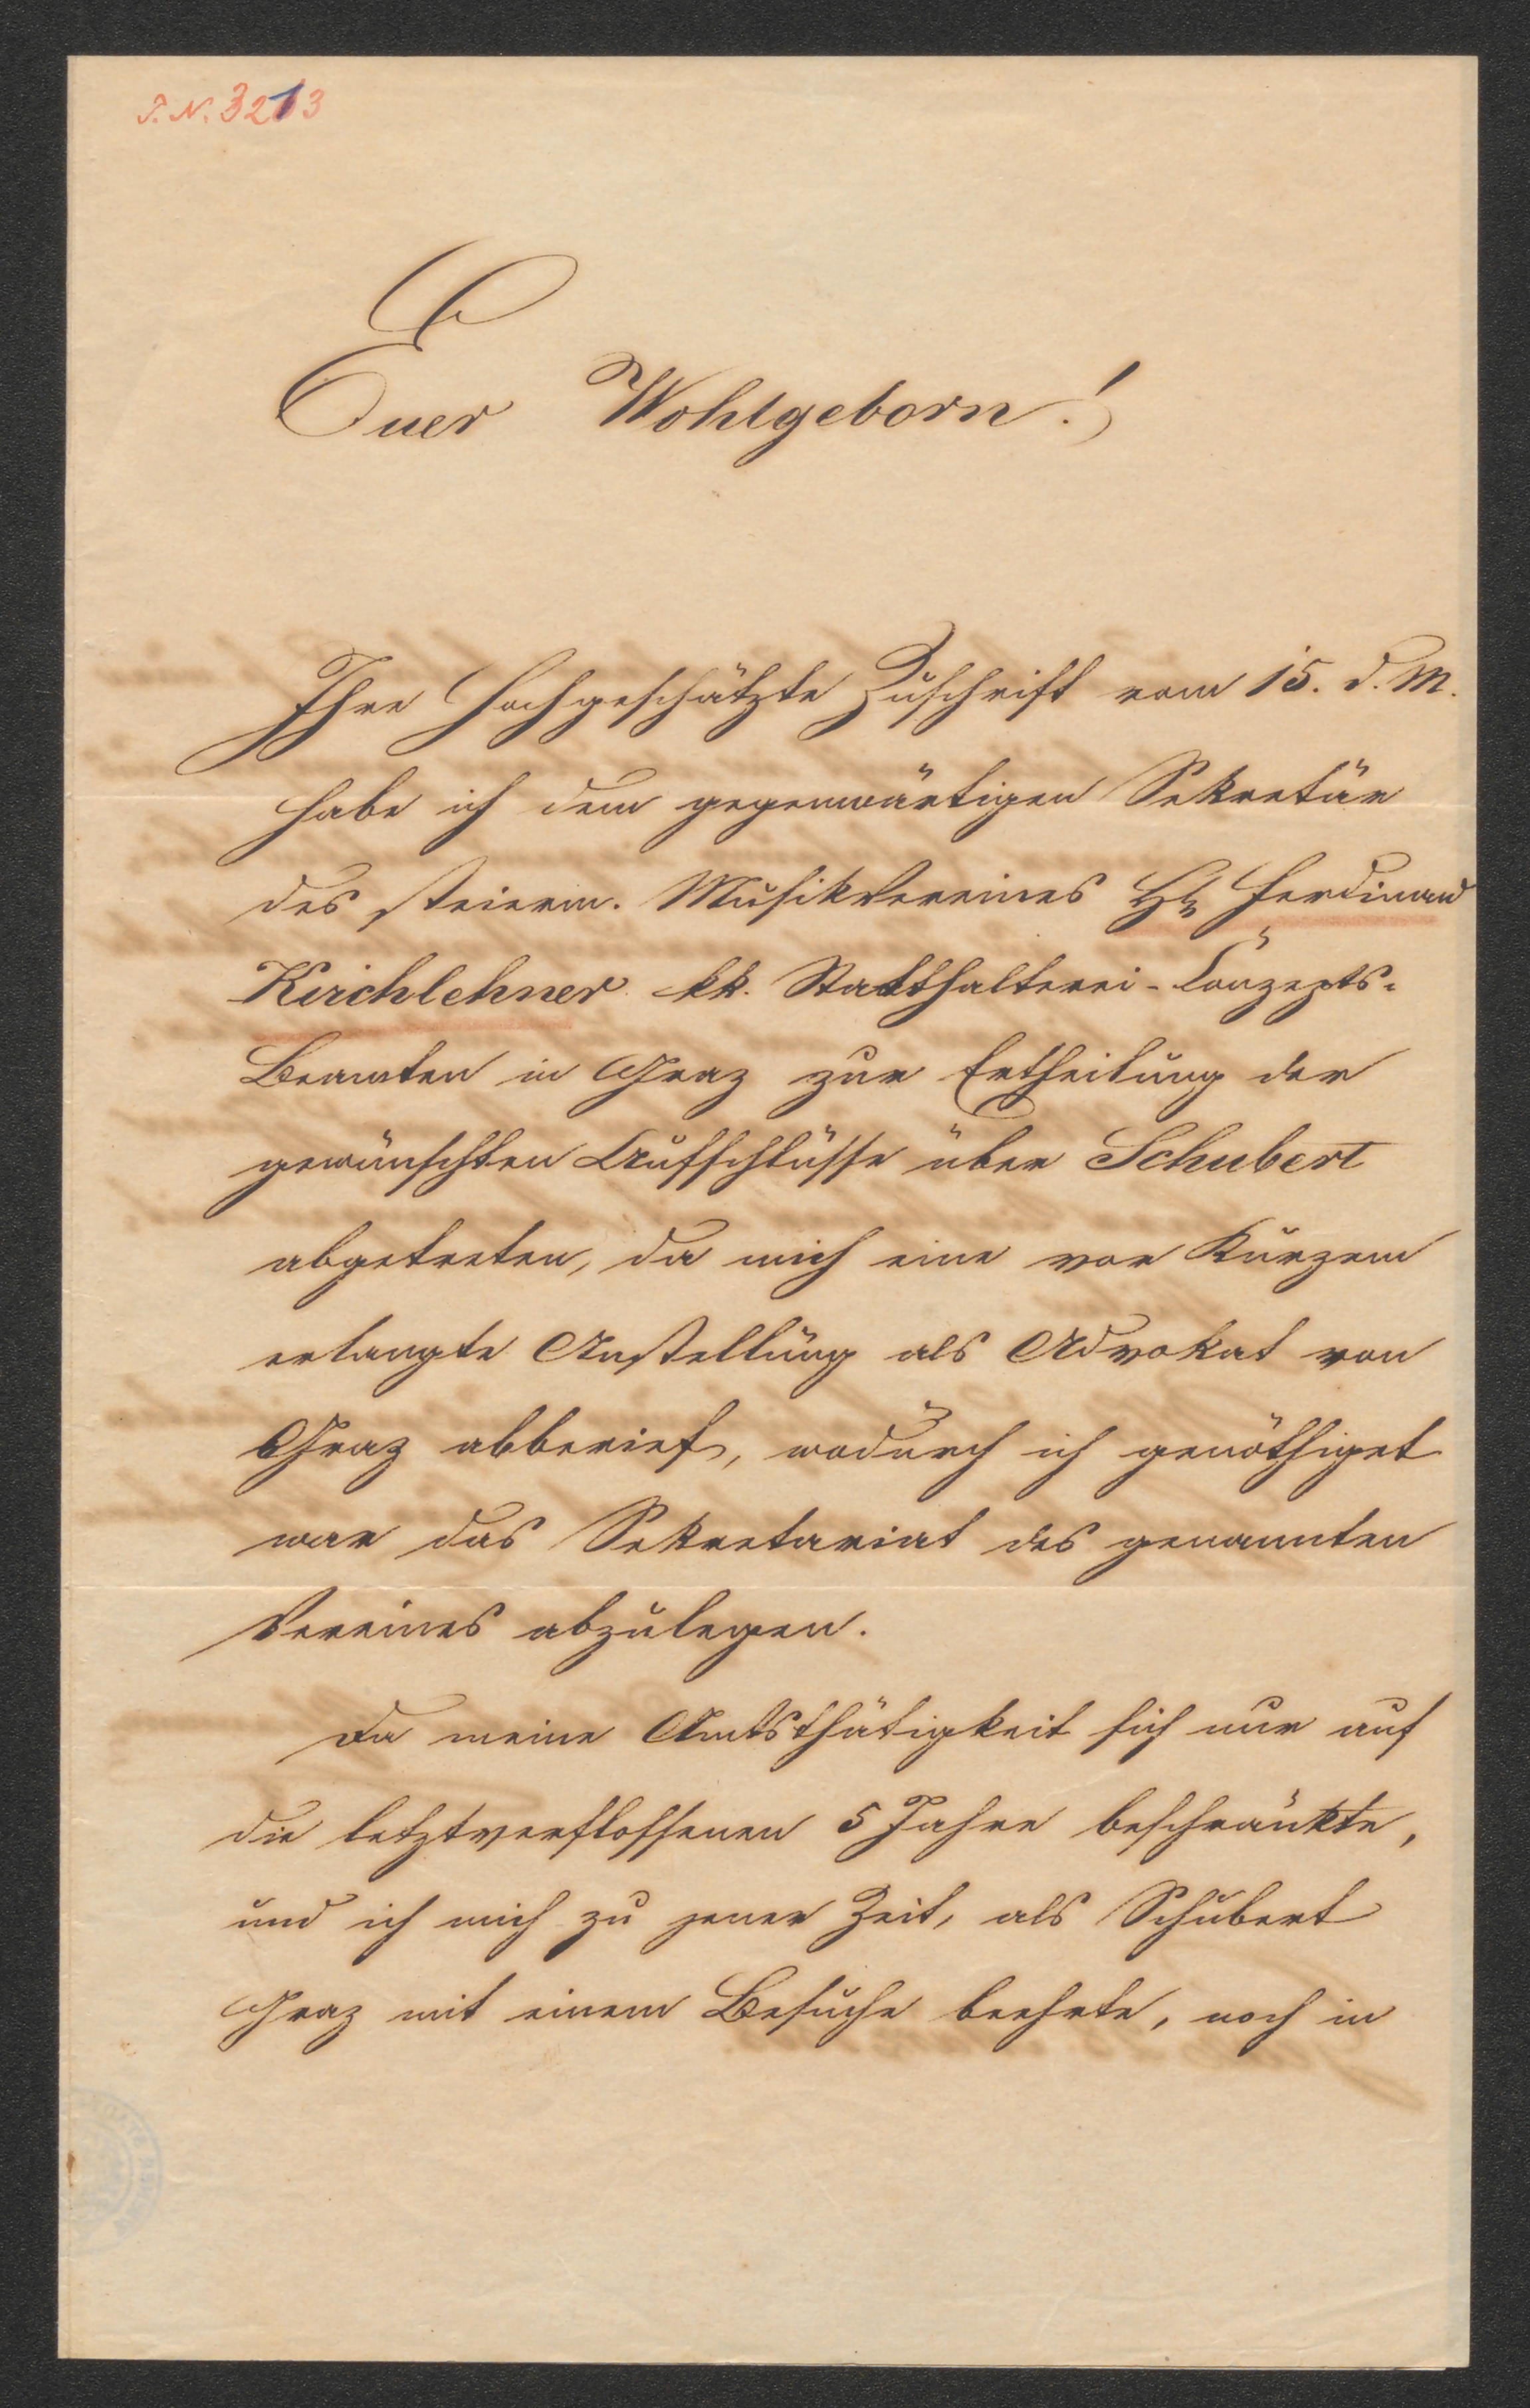 I.N. 3213
Euer Wohlgeborn!
Ihre hochgeschätzte Zuschrift vom 15. d. M.
habe ich dem gegenwärtigen Sekretär
des steierm. Musikvereines H Ferdinand
Kirchlehner kk. Statthalterei-Conzepts-
Beamten in Graz zur Ertheilung der
gewünschten Aufschlüsse über Schubert
abgetreten, da mich eine vor Kurzem
erlangte Anstellung als Advokat von
Graz abberief, wodurch ich genöthiget
war das Sekretariat des genannten
Vereines abzulegen.
Da meine Amtsthätigkeit sich nur auf
die letztverflossenen 5 Jahre beschränkte,
und ich mich zu jener Zeit, als Schubert
Graz mit einem Besuche beehrte, noch in